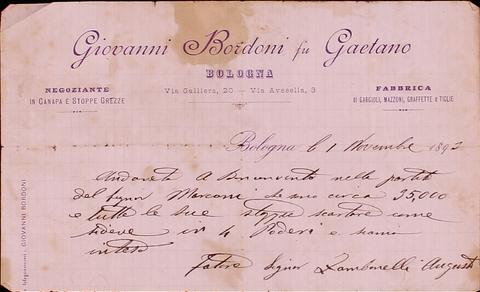 Giovanni Bordoni fu Gaetano
BOLOGNA
NEGOZIANTE
IN CANAPA E STOPPE GREZZE
Via Galliera, 20 — Via Avesella, 3
FABBRICA
DI GARGIOLI, MAZZONI, GRAFFETTE E TIGLIE
Bologna li 1 Novembre 189
Andorete a Benvenuto nelle partite
del signor Marconi circa 35,000
e tutte le sue stoppe scartate come
in 4 Poderi e siamo
intesi
Signor Zamborelli Augusto
GIOVANNI BORDONI